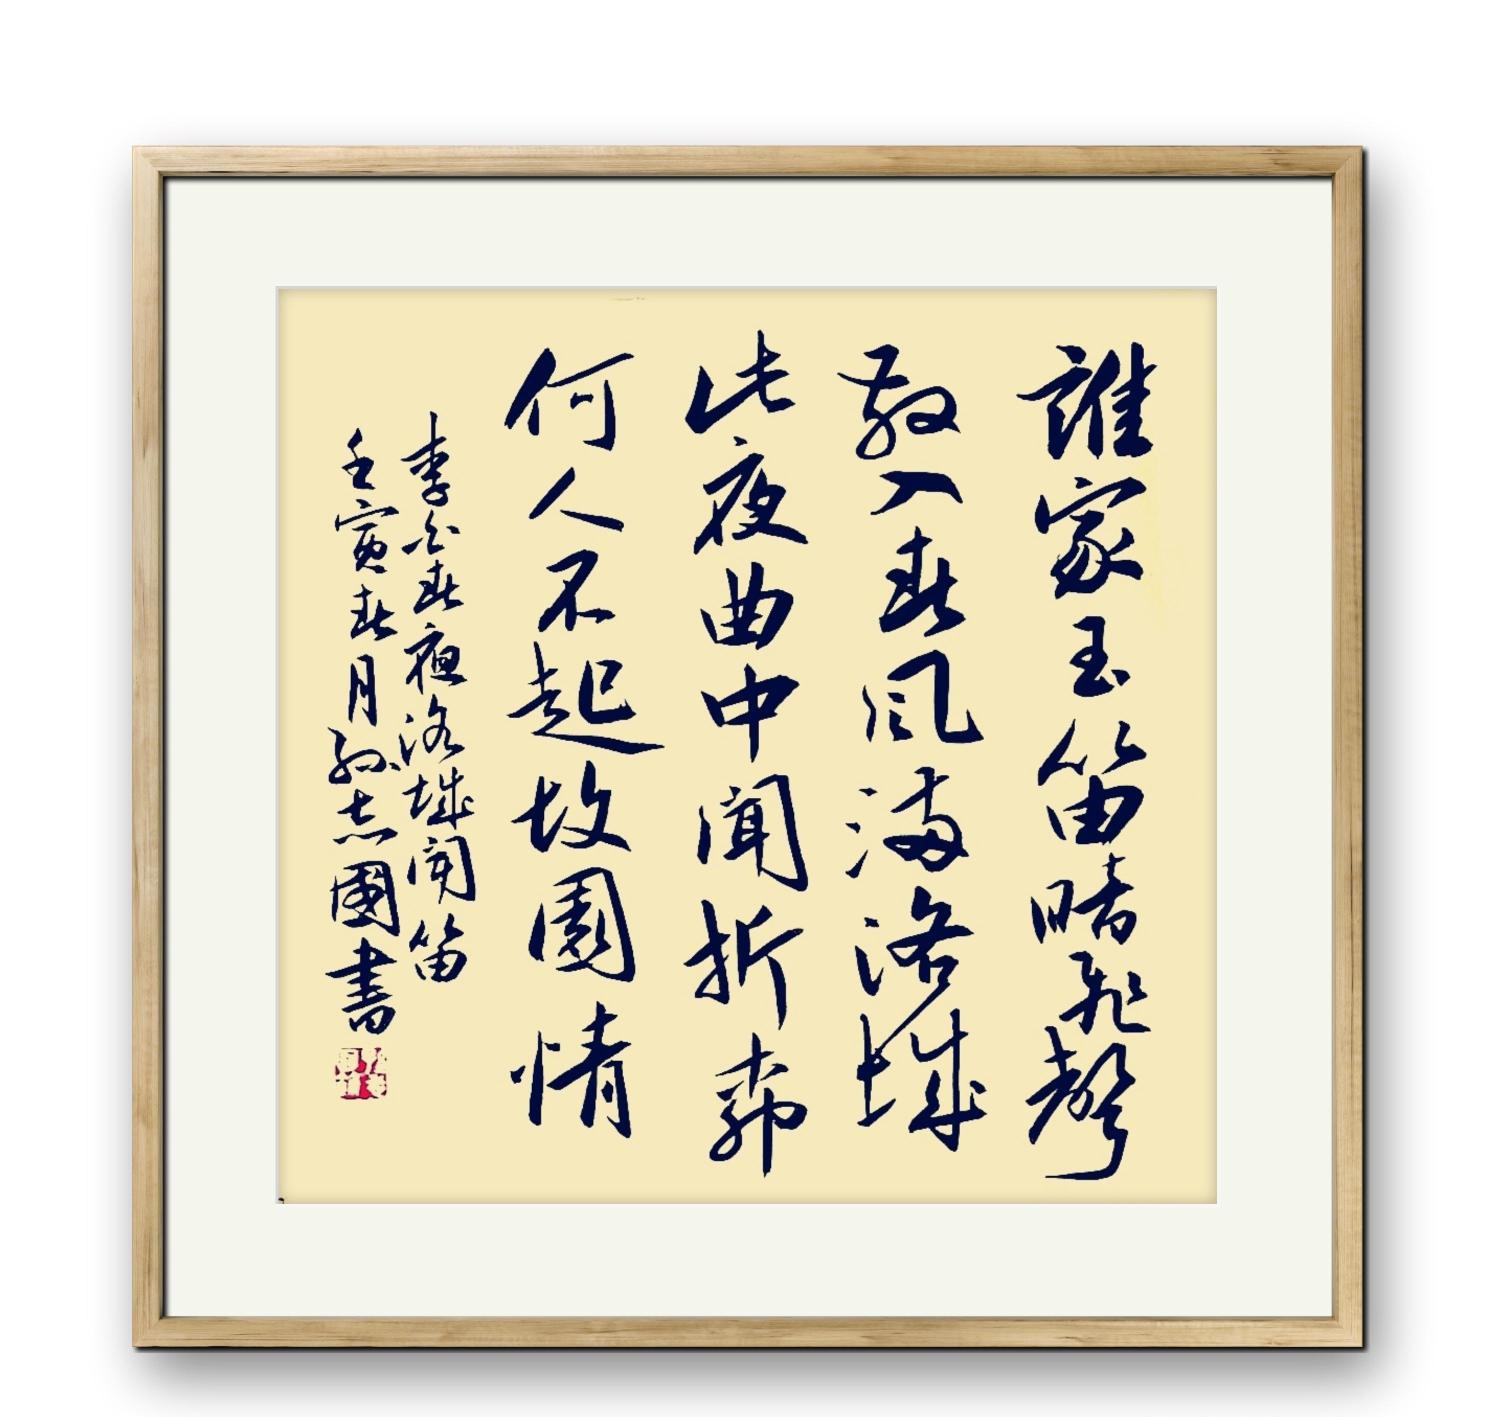 誰家玉笛暗飛聲
散入春風滿洛城
此夜曲中聞折柳
何人不起故園情
李白春夜洛城聞笛
壬寅春月孙志國書